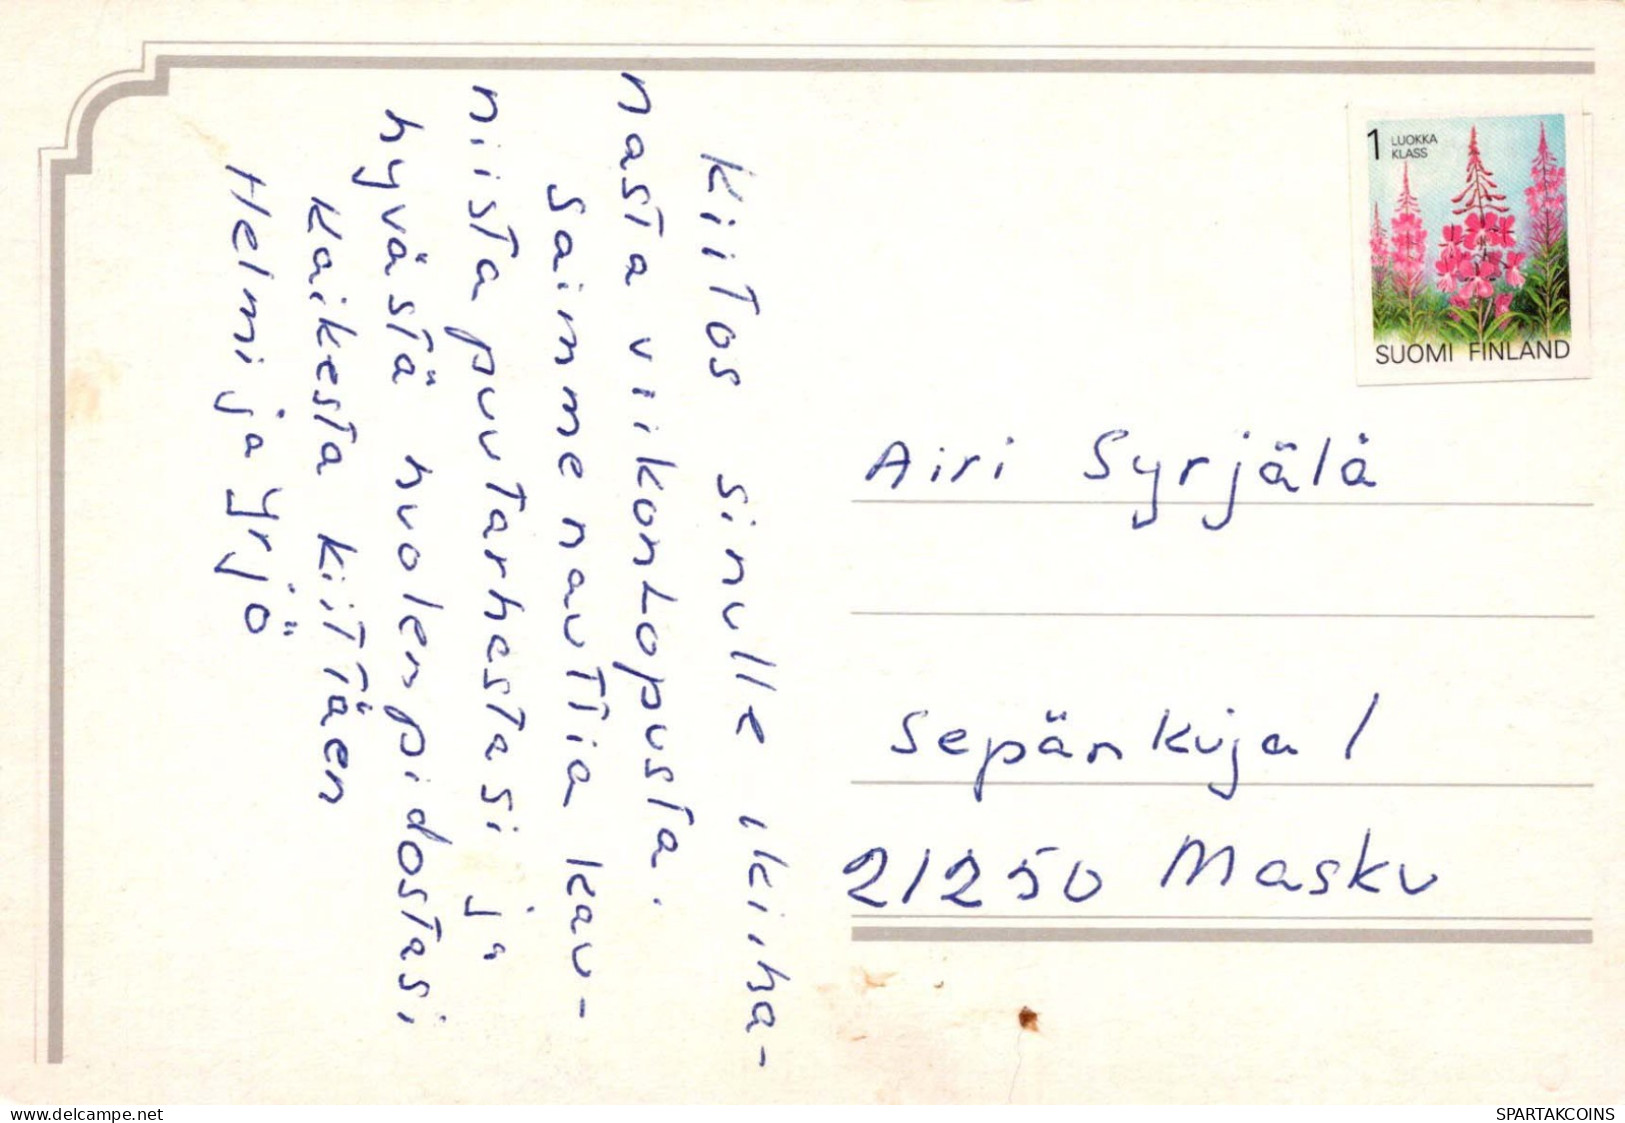 Kiitos sinulle ikiha-
nasta viikonlopusta.
Saimme nauttia kau-
niista puutarhastasi ja
hyvästä huolenpidostasi
Kaikesta kiittäen
Helmi ja Yrjö
1 LUOKKA
KLASS
SUOMI FINLAND
Airi Syrjälä
Sepänkuja 1
21250 Masku
www.delcampe.net
SPARTAKCOINS